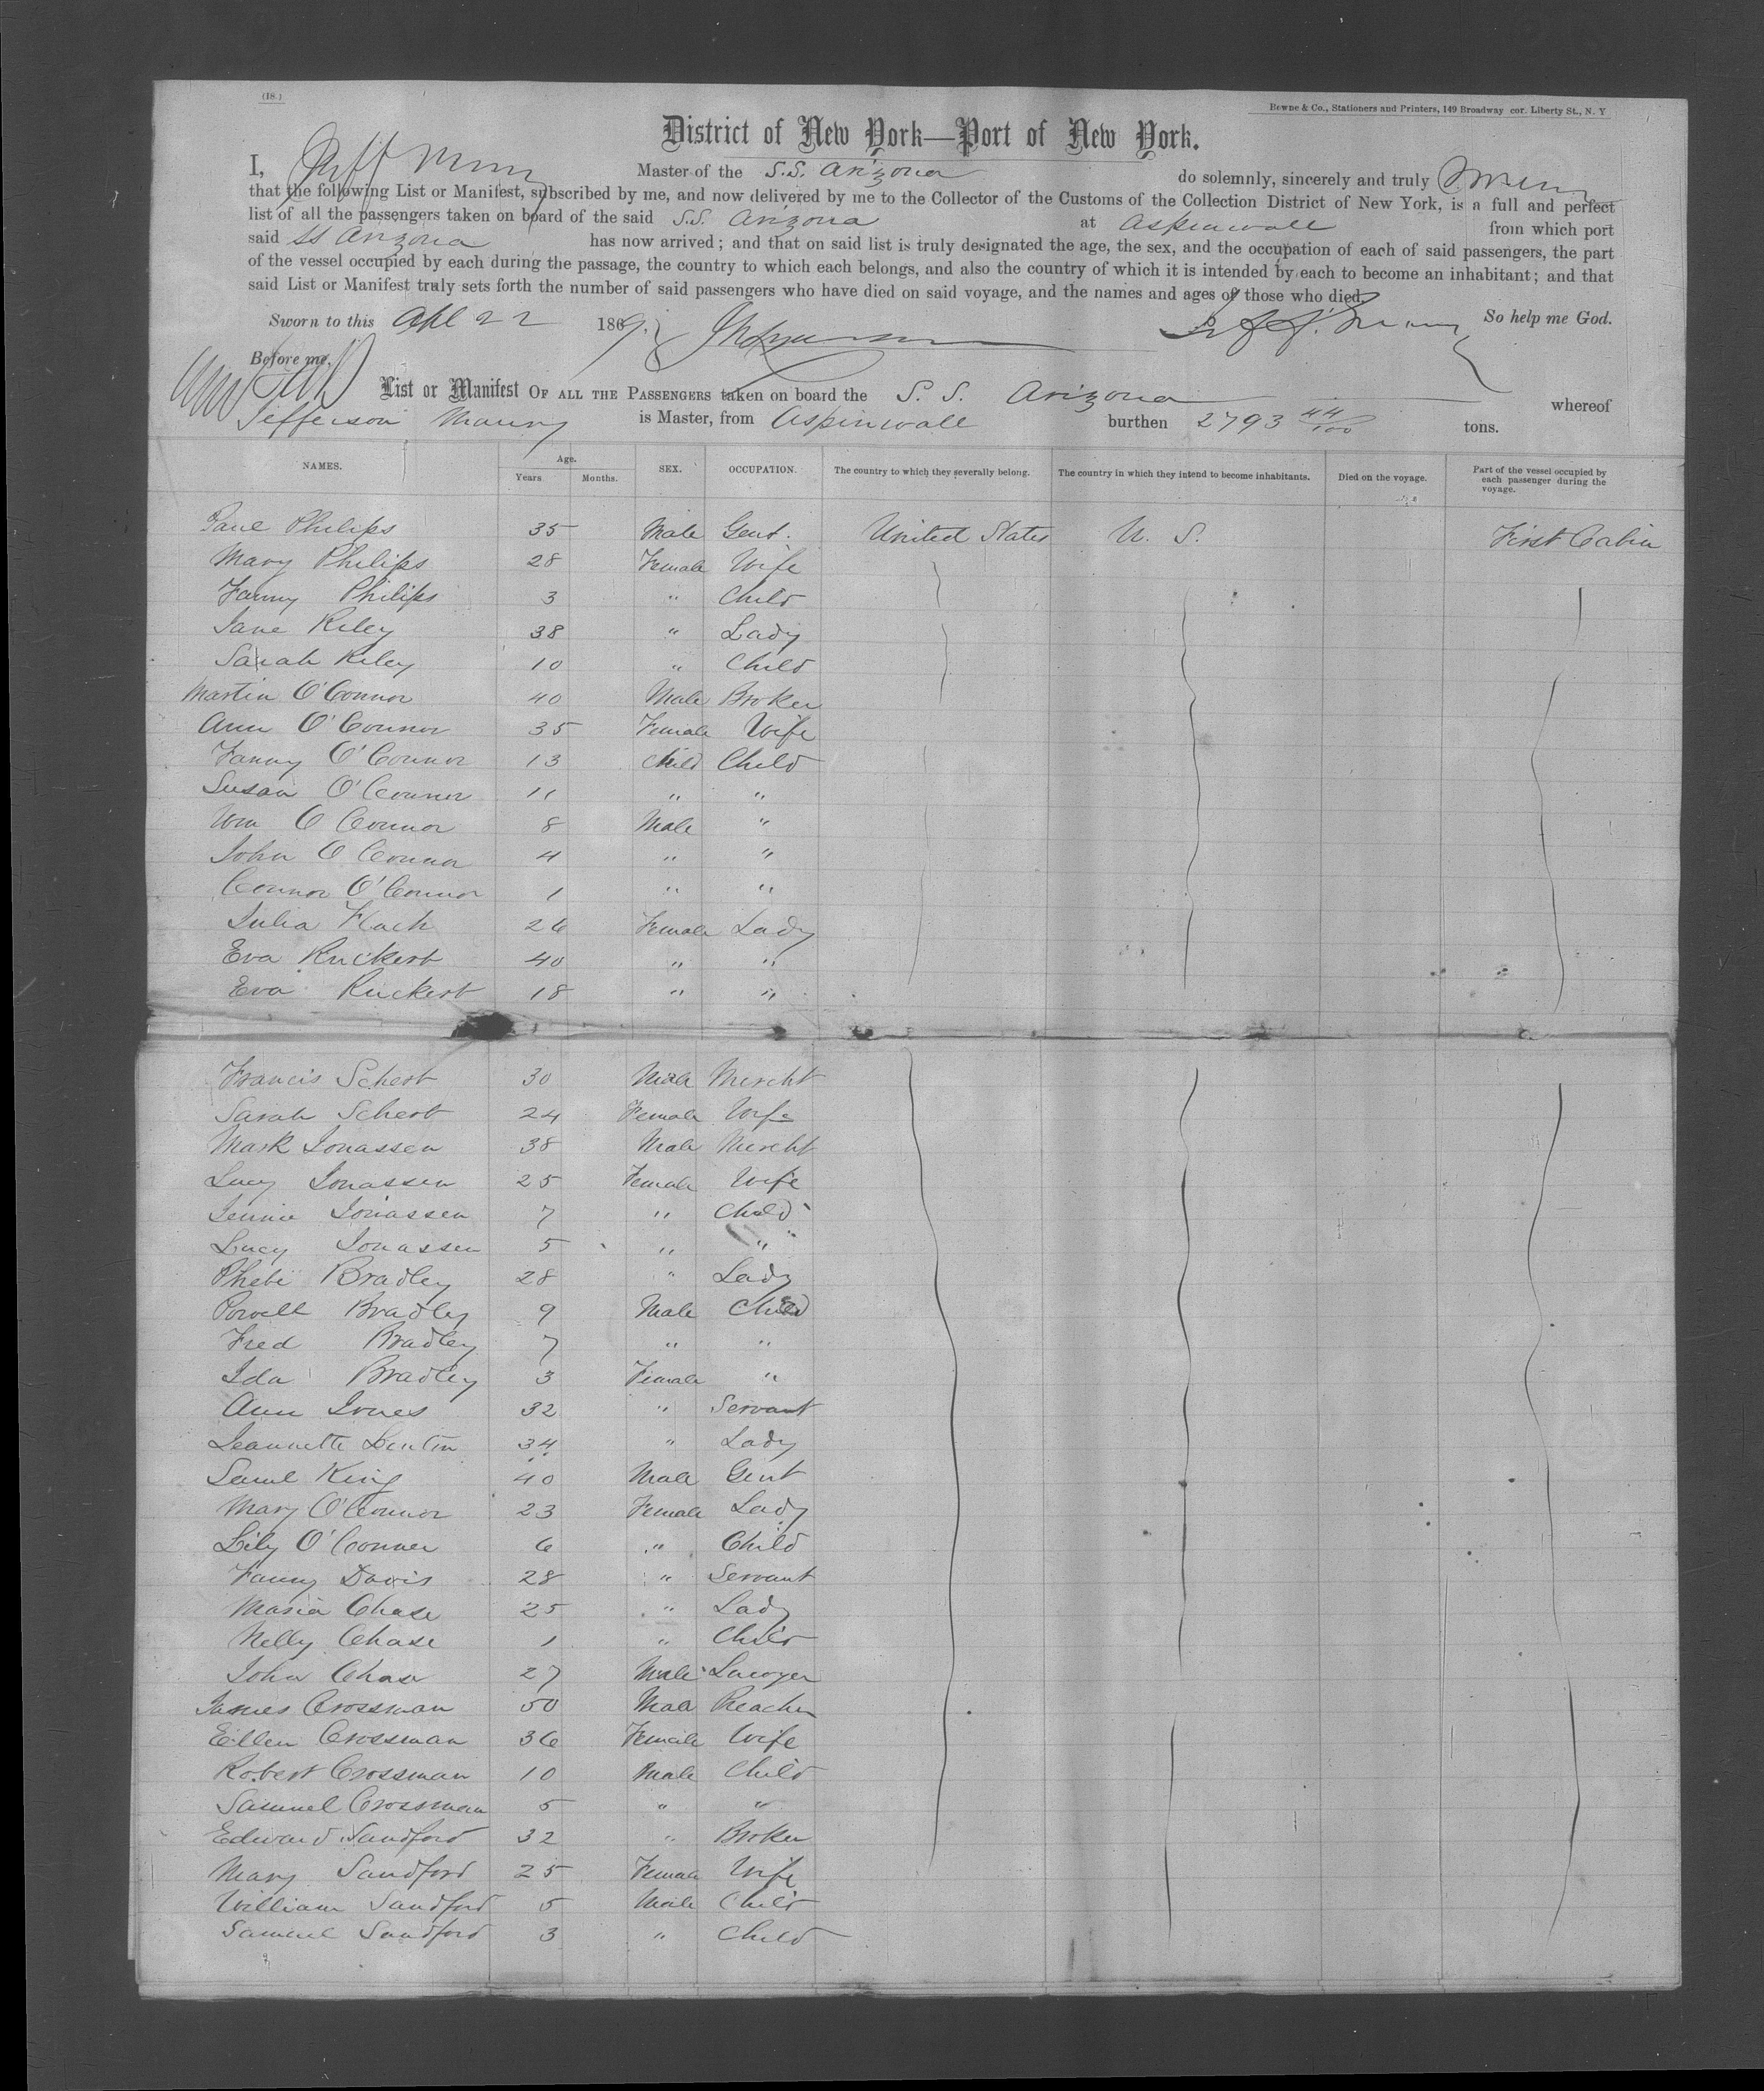 (18.)
Bowne & Co., Stationers and Printers, 149 Broadway cor. Liberty St., N. Y
District of New York—Port of New York.
I, Jeff Maury Master of the S.S. Arizona do solemnly, sincerely and truly swear
that the following List or Manifest, subscribed by me, and now delivered by me to the Collector of the Customs of the Collection District of New York, is a full and perfect
list of all the passengers taken on board of the said S.S. Arizona at Aspinwall from which port
said SS Arizona has now arrived; and that on said list is truly designated the age, the sex, and the occupation of each of said passengers, the part
of the vessel occupied by each during the passage, the country to which each belongs, and also the country of which it is intended by each to become an inhabitant; and that
said List or Manifest truly sets forth the number of said passengers who have died on said voyage, and the names and ages of those who died.
Sworn to this Apl 22 1869. So help me God.
Before me,
List or Manifest OF ALL THE PASSENGERS taken on board the S. S. Arizona whereof
Jefferson Maury is Master, from Aspinwall burthen 2793 44/100 tons.
NAMES. Age. Years Months. SEX. OCCUPATION. The country to which they severally belong. The country in which they intend to become inhabitants. Died on the voyage. Part of the vessel occupied by each passenger during the voyage.
Paul Philips 35 Male Gent. United States U. S. First Cabin
Mary Philips 28 Female Wife
Fanny Philips 3 " Child
Jane Riley 38 " Lady
Sarah Riley 10 " Child
Martin O'Connor 40 Male Broker
Ann O'Connor 35 Female Wife
Fanny O'Connor 13 Child Child
Susan O'Connor 11 " "
Wm O Connor 8 Male "
John O Connor 4 " "
Connor O'Connor 1 " "
Julia Flach 26 Female Lady
Eva Ruckert 40 " "
Eva Ruckert 18 " "
Francis Schert 30 Male Mercht
Sarah Schert 24 Female Wife
Mark Jonassen 38 Male Mercht
Lucy Jonassen 25 Female Wife
Jennie Jonassen 7 " Child
Lucy Jonassen 5 " "
Phebe Bradley 28 " Lady
Powell Bradley 9 Male Child
Fred Bradley 7 " "
Ida Bradley 3 Female "
Ann Jones 32 " Servant
Jeannette 34 " Lady
Saml King 40 Male Gent
Mary O'Connor 23 Female Lady
Lily O'Conner 6 " Child
Fanny Davis 28 " Servant
Maria Chase 25 " Lady
Nelly Chase 1 " Child
John Chase 27 Male Lawyer
James Crossman 50 Male Preacher
Ellen Crossman 36 Female Wife
Robert Crossman 10 Male Child
Samuel Crossman 5 " "
Edward Sandford 32 " Broker
Mary Sandford 25 Female Wife
William Sandford 5 Male Child
Samuel Sandford 3 " Child